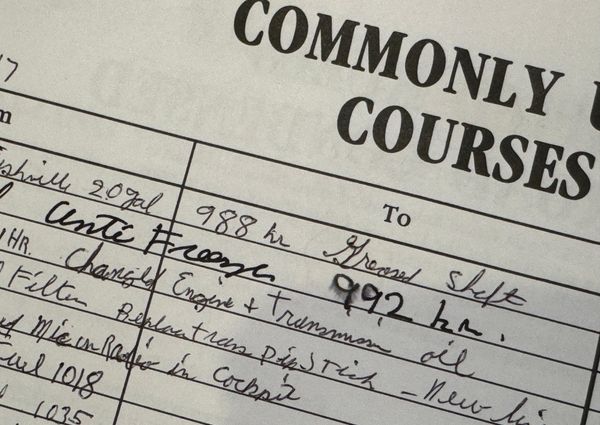 COMMONLY
COURSES
17
To
20 gal 988 hr Greased Shaft
Anti Freeze 992 hr.
HR. Changed Engine + Transmission oil
Filter Replace trans Dip Stick - New
Mic in Radio in Cockpit
1018
1035